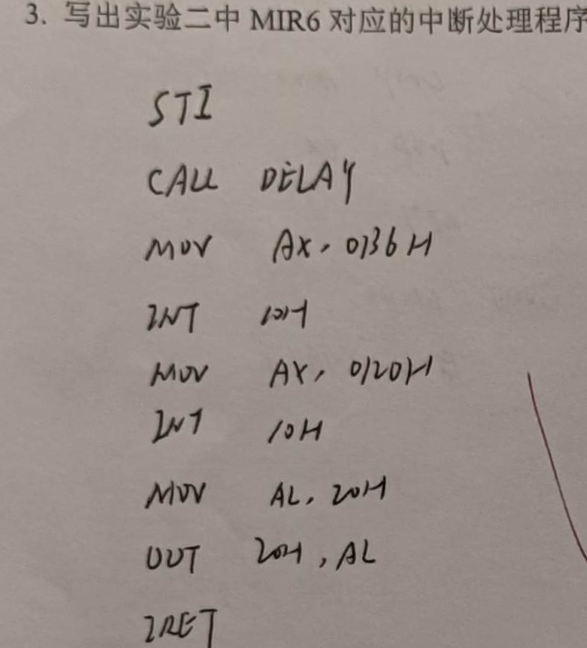 3. 写出实验二中 MIR6 对应的中断处理程序
STI
CALL DELAY
MOV AX, 0136H
INT 10H
MOV AX, 0120H
INT 10H
MOV AL, 20H
OUT 20H, AL
IRET